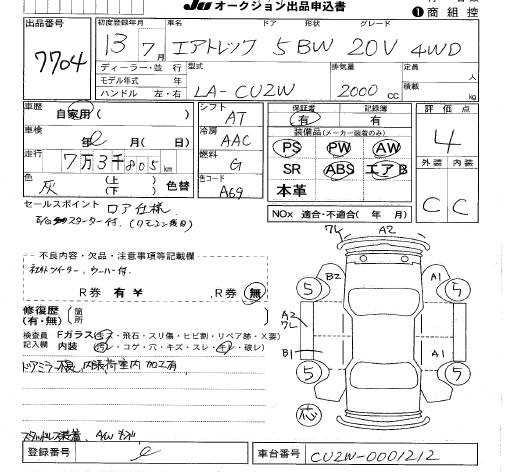 JU オークション出品申込書
❶商 組 控
出品番号 7704
初度登録年月 車名 ドア 形状 グレード
13年 7月 エアトレック 5 BW 20V 4WD
ディーラー・並行 型式 排気量 定員
モデル年式 年 LA-CU2W 2000 CC 人
ハンドル 左・右 積載 kg
車歴 自家用( )
シフト AT
保証書 記録簿
有 有
評価点 4
車検 年 月( 日)
冷房 AAC
装備品(メーカー装着のみ)
PS PW AW
走行 7万3千805km
燃料 G
SR ABS エアB
外装 内装
色 灰 (上 下) 色替
色コード A69
本革
C C
セールスポイント ロア仕様
スターター付.
NOx 適合・不適合( 年 月)
ワレ A2
不良内容・欠品・注意事項等記載欄
ウーハー付.
R券 有 ¥ R券 無
B2 A1
5 5
修復歴 (有・無) 箇所
A2 ワレ
検査員記入欄 Fガラス(キズ・飛石・スリ傷・ヒビ割・リペア跡・X要)
内装 (汚レ・コゲ・穴・キズ・スレ・破レ)
B1 A1
ドアミラー 内張荷室内 加工有
5 5
応
スタッドレス装着.
登録番号
車台番号 CU2W-0001212